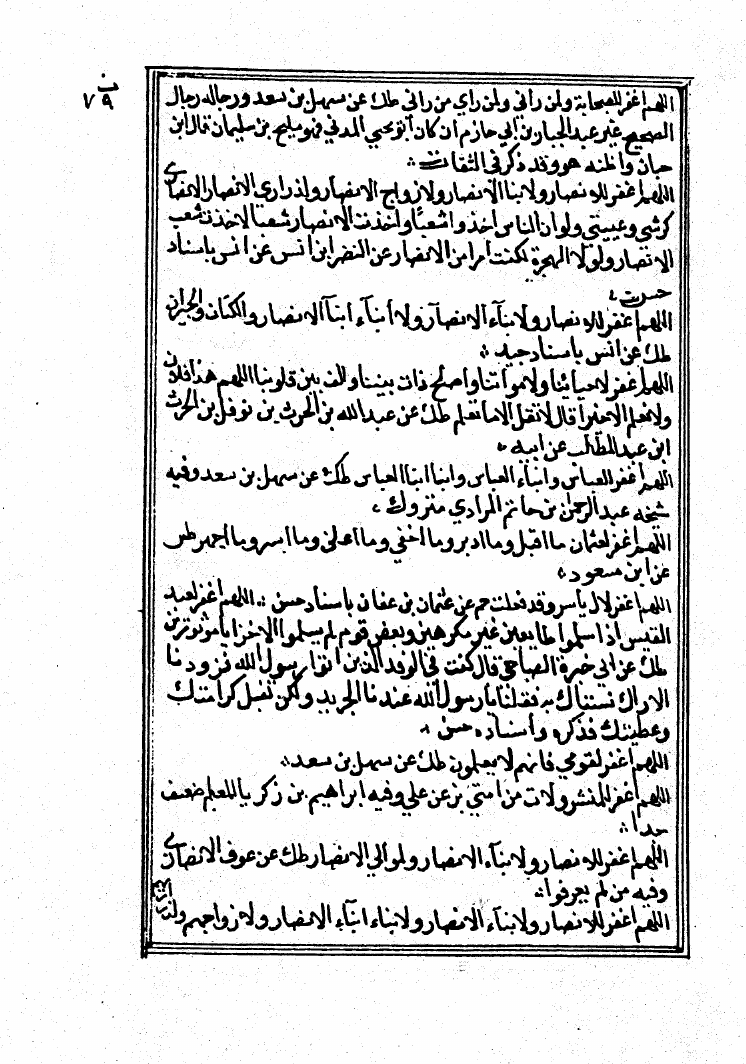 ب
٧٩
اللهم اغفر للصحابة ولمن راني ولمن راي من راني طك عن سهل بن سعد ورجاله رجال
الصحيح غير عبد الجبار بن ابي حازم ان كان ابو يحيي المدني فهو مليح بن سليمان قال ابن
حبان واظنه هو وقد ذكر في الثقات
اللهم اغفر للانصار ولابنا الانصار ولازواج الانصار ولذراري الانصار الانصار
كرشي وعيبتي ولو ان الناس اخذوا شعبا واخذت الانصار شعبا لاخذت شعب
الانصار ولولا الهجرة لكنت امرا من الانصار عن النضر ابن انس عن انس باسناد
حسن
اللهم اغفر للانصار ولابناء الانصار ولابناء ابناء الانصار والكنات والجيران
طك عن انس باسناد جيد
اللهم اغفر لاحيائنا ولامواتنا واصلح ذات بيننا والف بين قلوبنا اللهم هذا فلان
ولا نعلم الا خيرا قال لا تقل الا ما تعلم طك عن عبد الله بن الحرث بن نوفل بن الحرث
ابن عبد المطلب عن ابيه
اللهم اغفر للعباس وابناء العباس وابنا ابنا العباس طك عن سهل بن سعد وفيه
شيخه عبد الرحمن بن حاتم المرادي متروك
اللهم اغفر لعثمان ما اقبل وما ادبر وما اخفي وما اعلن وما اسر وما اجهر طس
عن ابن مسعود
اللهم اغفر لال ياسر وقد فعلت حم عن عثمان بن عفان باسناد حسن اللهم اغفر لعبد
القيس اذ اسلموا طايعين غير مكرهين وبعض قوم لم يسلموا الا خزايا موتورين
طك عن ابي خيرة الصباحي قال كنت في الوفد الذين اتوا رسول الله فزودنا
الاراك نستاك به فقلنا يا رسول الله عندنا الجريد ولكن نقبل كرامتك
وعطيتك فذكره واسناده حسن
اللهم اغفر لقومي فانهم لا يعلمون طك عن سهل بن سعد
اللهم اغفر للمتسرولات من امتي بز عن علي وفيه ابراهيم بن زكريا المعلم ضعيف
جدا
اللهم اغفر للانصار ولابناء الانصار ولموالي الانصار طك عن عوف الانصاري
وفيه من لم يعرفوا
اللهم اغفر للانصار ولابناء الانصار ولابناء ابناء الانصار ولازواجهم ولذراريهم